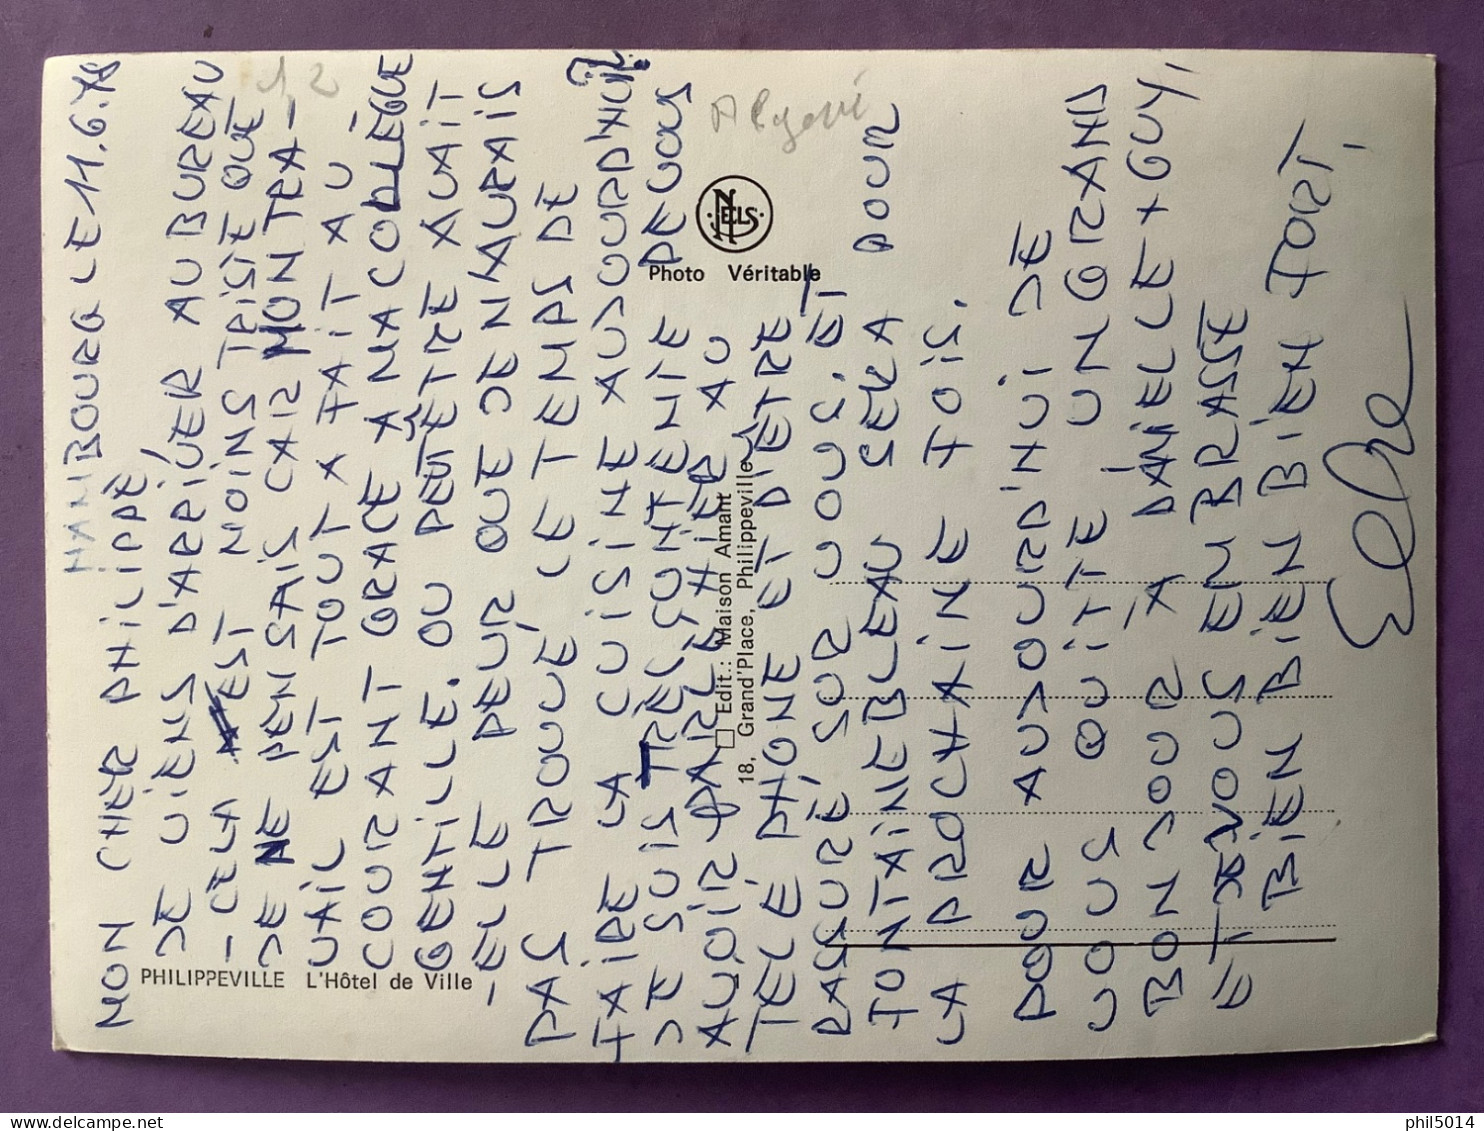 HAMBOURG LE 11.6.78
MON CHER PHILIPPE,
JE VIENS D'ARRIVER AU BUREAU
- CELA EST MOINS TRISTE QUE
JE NE PENSAIS CAR MON TRA-
VAIL EST TOUT A FAIT AU
COURANT GRACE À MA COLLÈGUE
GENTILLE. OU PEUT ÊTRE AVAIT
-ELLE PEUR QUE JE N'AURAIS
PAS TROUVÉ LE TEMPS DE
FAIRE LA CUISINE AUJOURD'HUI?
JE SUIS TRÈS CONTENTE DE VOUS
AVOIR PARLÉ AU
TELEPHONE ET D'ETRE
RASSURÉE SUR VOUS.
TON TABLEAU SERA POUR
LA PROCHAINE FOIS.
POUR AUJOURD'HUI JE
VOUS QUITTE UN GRAND
BONJOUR A DANIELLE + GUY,
ET JE VOUS EMBRASSE
BIEN BIEN BIEN BIEN FORT,
Elke
1,2
Algérie
NELS
Photo Véritable
Edit.: Maison Amant
18, Grand'Place, Philippeville
PHILIPPEVILLE L'Hôtel de Ville
phil5014